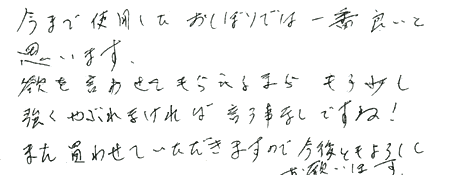 今まで使用したおしぼりでは一番良いと
思います。
欲を言わせてもらえるなら もう少し
強くやぶれなければ言う事なしですね!
また買わせていただきますので今後ともよろしく
お願いします。